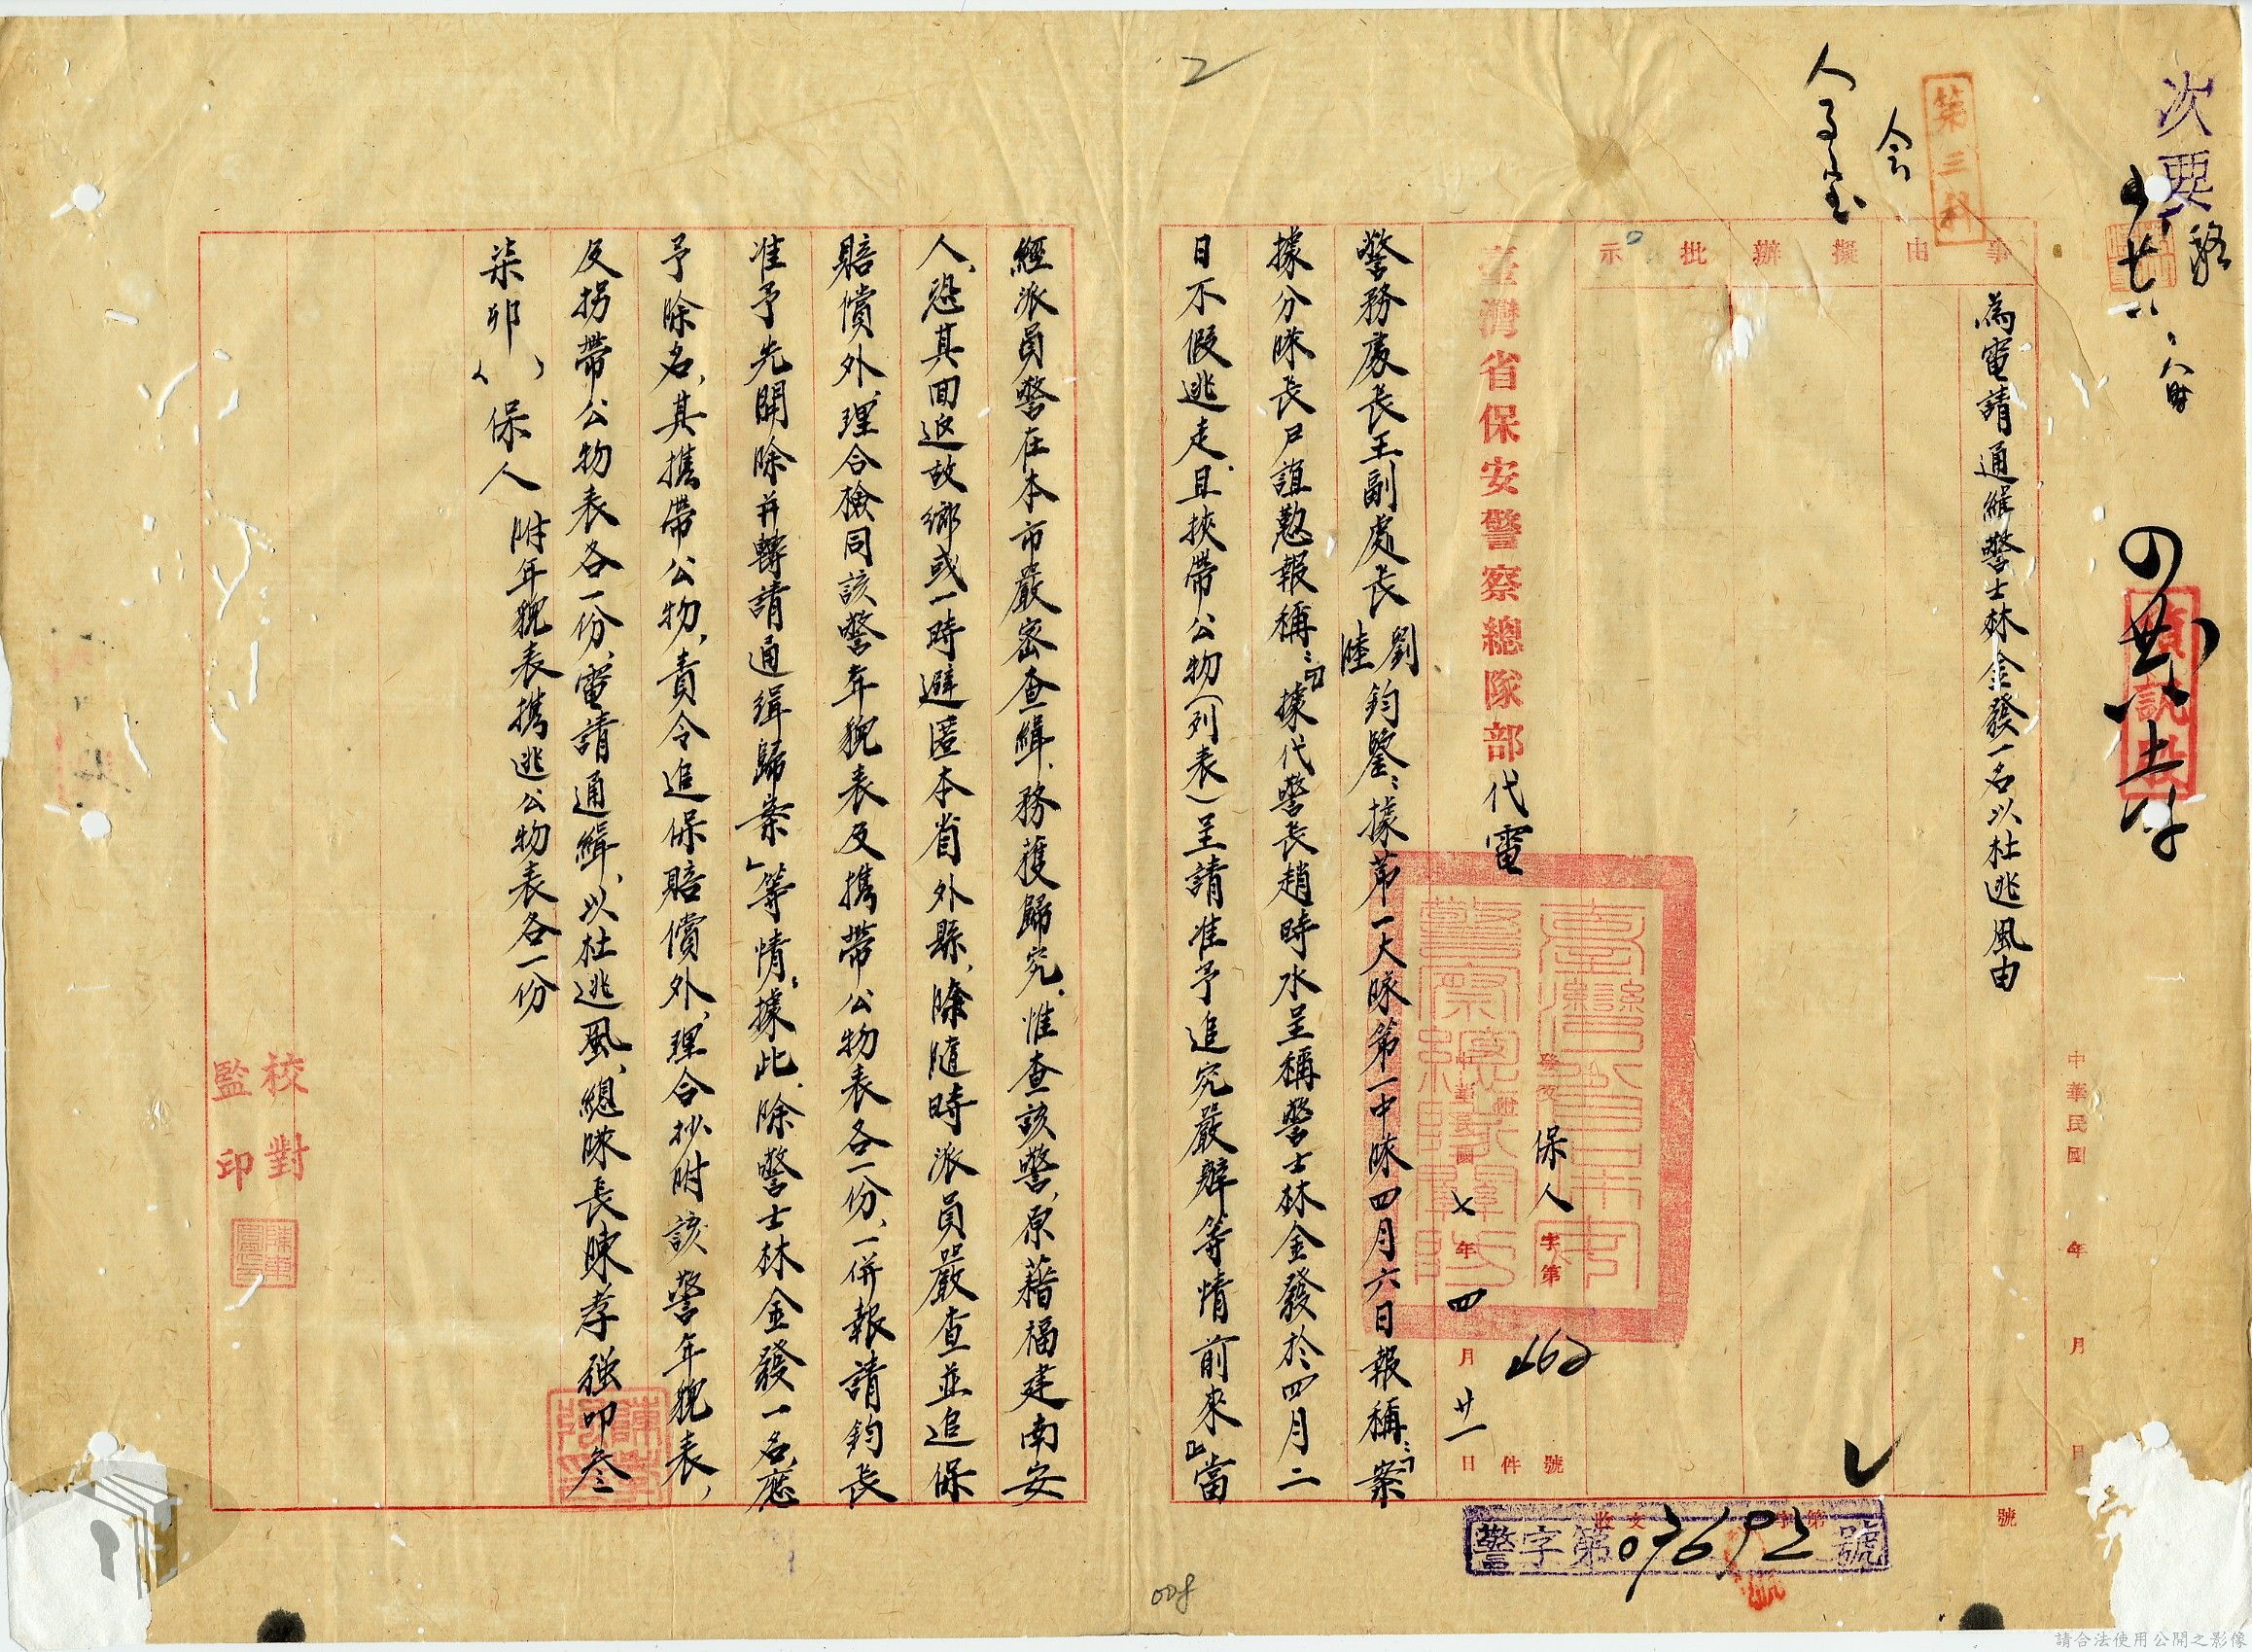 次要
第三科
事由
擬辦
批示
為電請通緝警士林金發一名以杜逃風由
中華民國 年 月 日
號
臺灣省保安警察總隊部代電
保人字第 號
中華民國 年四月廿一日
警務處長王副處長劉陸鈞鑒：據第一大隊第一中隊四月六日報稱：「案
據分隊長尸誼懃報稱：「據代警長趙時水呈稱警士林金發於四月二
日不假逃走，且挾帶公物（列表）呈請准予追究嚴辦等情前來」當
經派員警在本市嚴密查緝，務獲歸究，惟查該警，原藉福建南安
人，恐其回返故鄉或一時避匿本省外縣，除隨時派員嚴查並追保
賠償外，理合檢同該警年貌表及攜帶公物表各一份，一併報請鈞長
准予先開除并轉請通緝歸案」等情，據此，除警士林金發一名，應
予除名，其攜帶公物，責令追保賠償外，理合抄附該警年貌表，
及拐帶公物表各一份，電請通緝，以杜逃風，總隊長陳孝強叩叁
柒卯（ ）保人 附年貌表攜逃公物表各一份
校對
監印
警字第 07692 號
收文 字第 號
2
008
請合法使用公開之影像